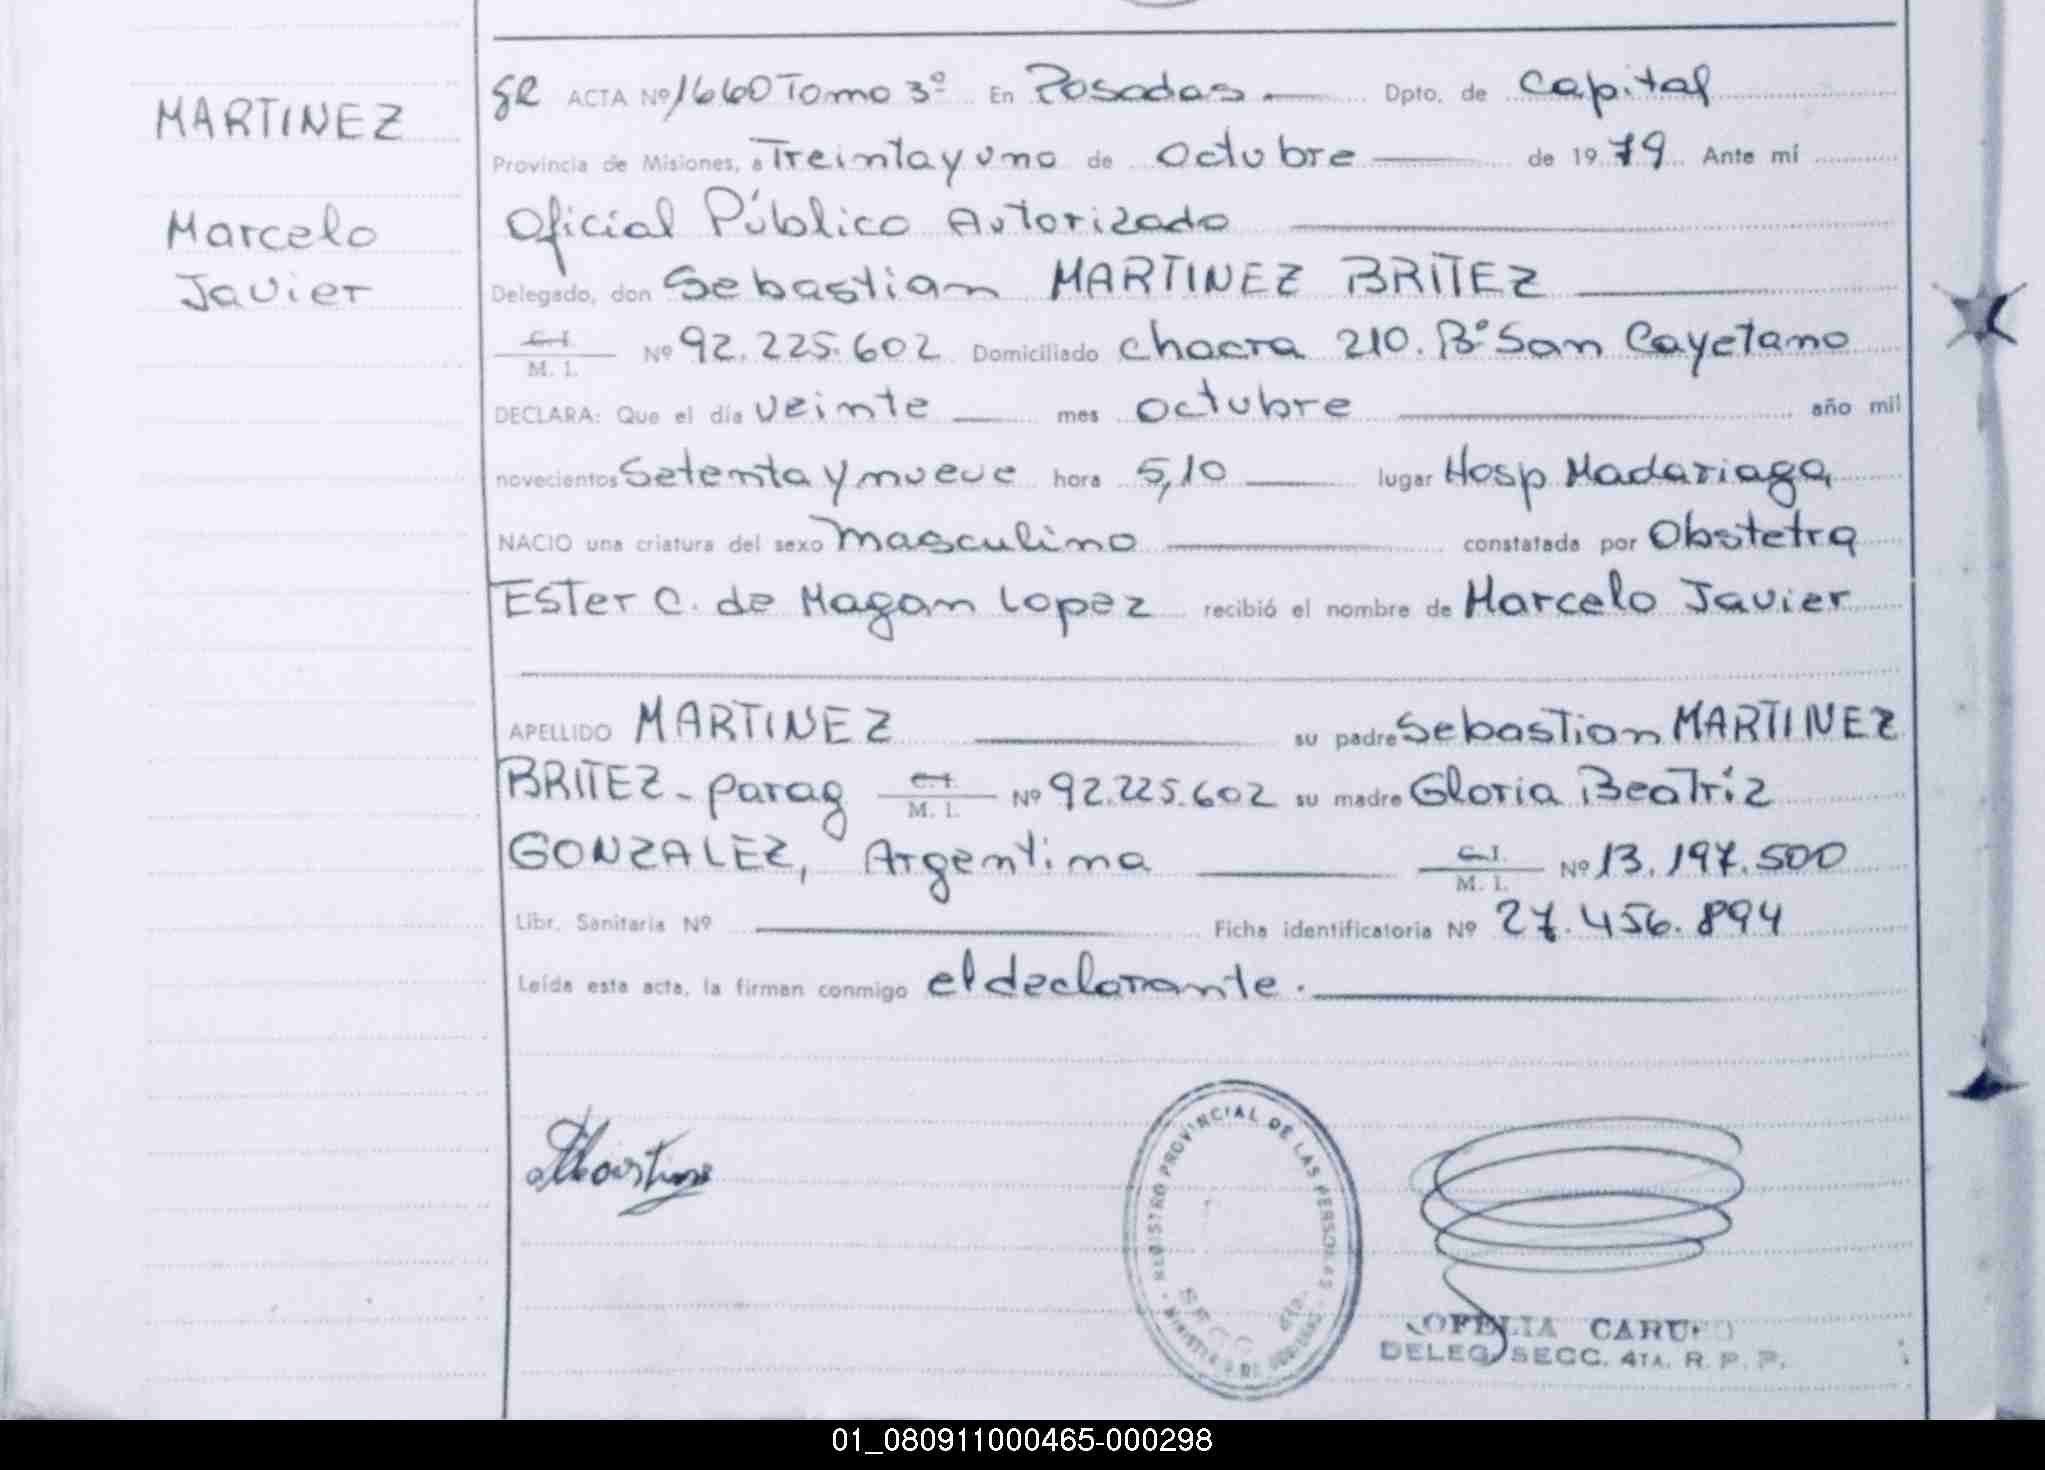 MARTINEZ
Marcelo
Javier
SR ACTA Nº 1660 Tomo 3º En Posadas Dpto. de Capital
Provincia de Misiones, a Treinta y uno de Octubre de 1979 Ante mí
Oficial Público Autorizado
Delegado, don Sebastian MARTINEZ BRITEZ
C.I.
M. I. Nº 92.225.602 Domiciliado Chacra 210. Bº San Cayetano
DECLARA: Que el día veinte mes octubre año mil
novecientos Setenta y nueve hora 5,10 lugar Hosp Madariaga
NACIO una criatura del sexo Masculino constatada por Obstetra
Ester C. de Magan Lopez recibió el nombre de Marcelo Javier
APELLIDO MARTINEZ su padre Sebastian MARTINEZ
BRITEZ - parag C.I. M. I. Nº 92.225.602 su madre Gloria Beatriz
GONZALEZ, Argentina C.I. M. I. Nº 13.197.500
Libr. Sanitaria Nº Ficha identificatoria Nº 27.456.894
Leída esta acta, la firman conmigo el declarante.
REGISTRO PROVINCIAL DE LAS PERSONAS
MINISTERIO DE GOBIERNO
SECC. 4ta.
OFELIA
DELEG. SECC. 4TA. R. P. P.
01_080911000465-000298